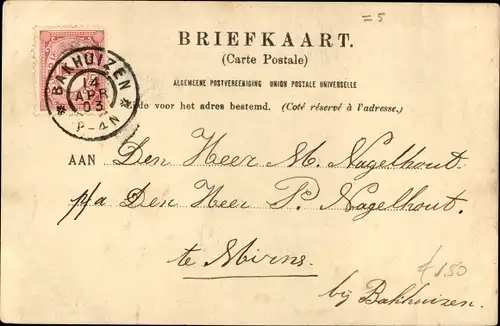 = 5
BRIEFKAART.
(Carte Postale)
ALGEMEENE POSTVEREENIGING UNION POSTALE UNIVERSELLE
Zijde voor het adres bestemd. (Coté réservé à l'adresse.)
BAKHUIZEN
14
APR
03
P-4N
AAN Den Heer M. Nagelhout.
p/a Den Heer P. Nagelhout.
te Mirns.
bij Bakhuizen.
f 1.50